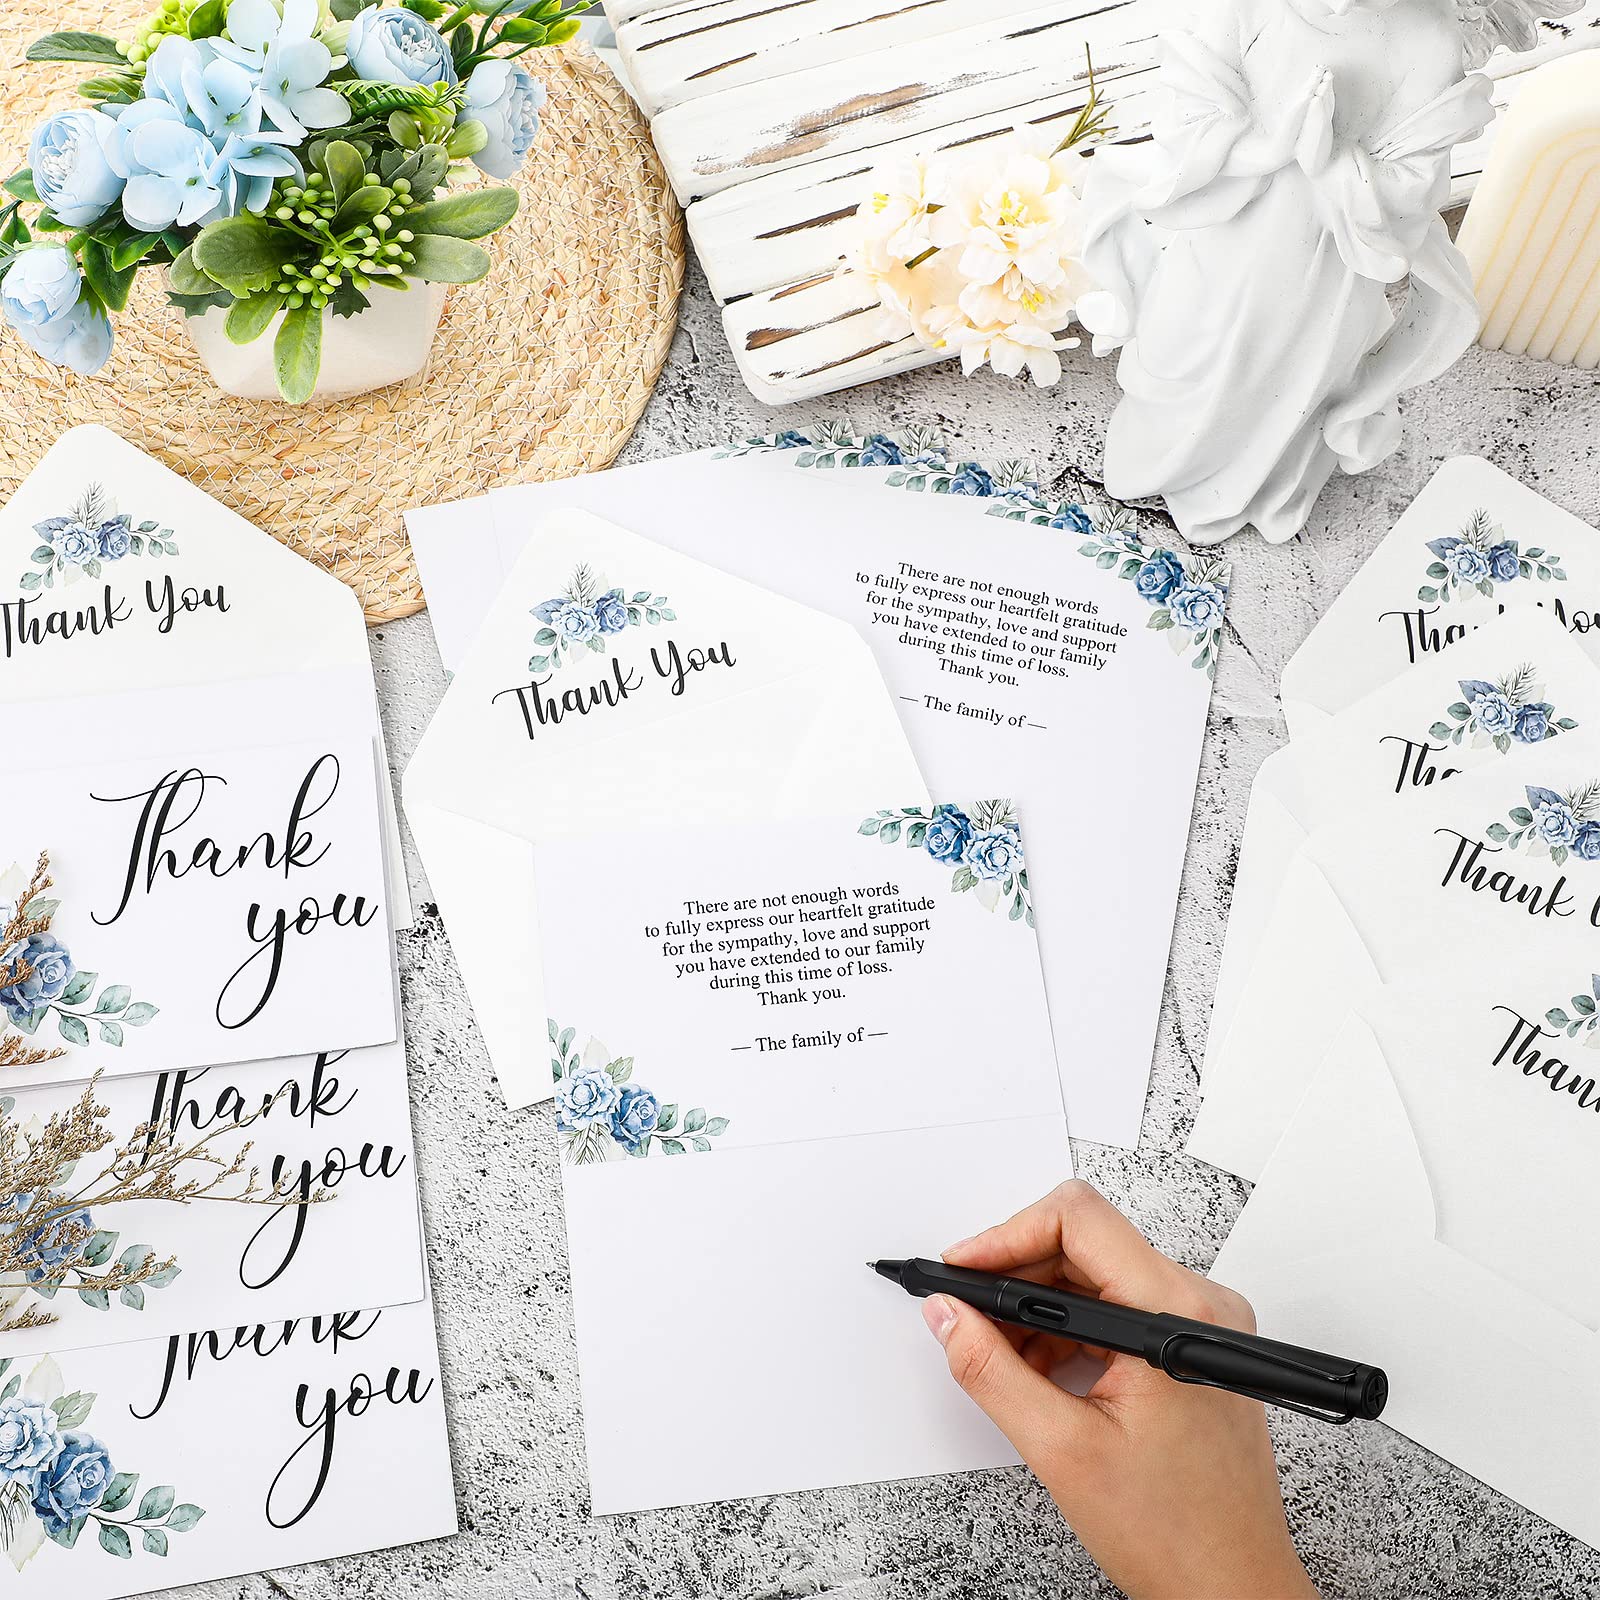 Thank You
Thank
you
Thank
you
Thank
you
Thank You
There are not enough words
to fully express our heartfelt gratitude
for the sympathy, love and support
you have extended to our family
during this time of loss.
Thank you.
— The family of —
There are not enough words
to fully express our heartfelt gratitude
for the sympathy, love and support
you have extended to our family
during this time of loss.
Thank you.
— The family of —
Thank You
Thank
Thank
Thank